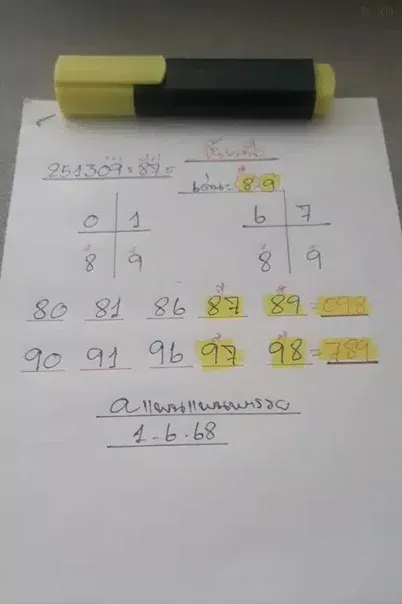 251309 = 87 =
เด่น = 8-9
0 1
8 9
6 7
8 9
80 81 86 87 89 = 098
90 91 96 97 98 = 789
1-6-68